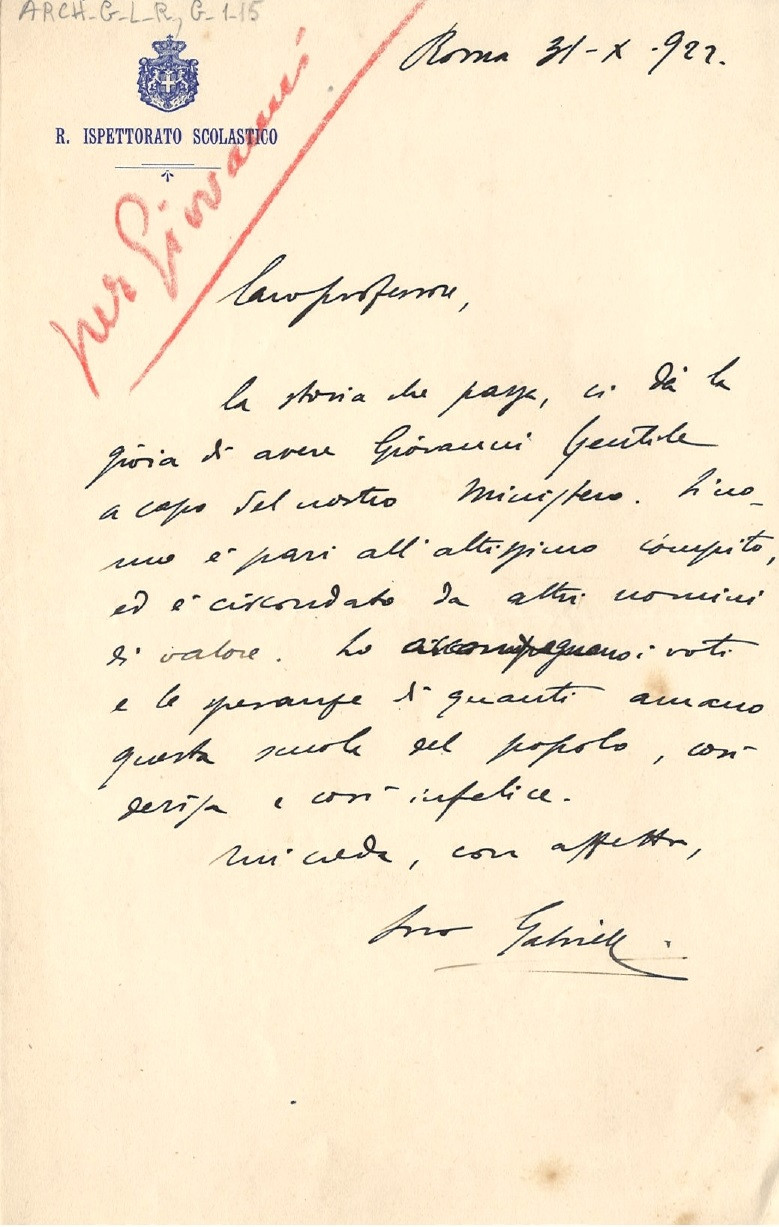 ARCH-G-L-R, G-1-15
Roma 31-X-922.
R. ISPETTORATO SCOLASTICO
per Giovanni
Caro professore,
la storia che passa, ci dà la
gioia di avere Giovanni Gentile
a capo del nostro Ministero. L'uo-
mo è pari all'altissimo compito,
ed è circondato da altri uomini
di valore. Lo accompagnano i voti
e le speranze di quanti amano
questa scuola del popolo, così
derisa e così infelice.
Mi creda, con affetto,
suo Gabriele